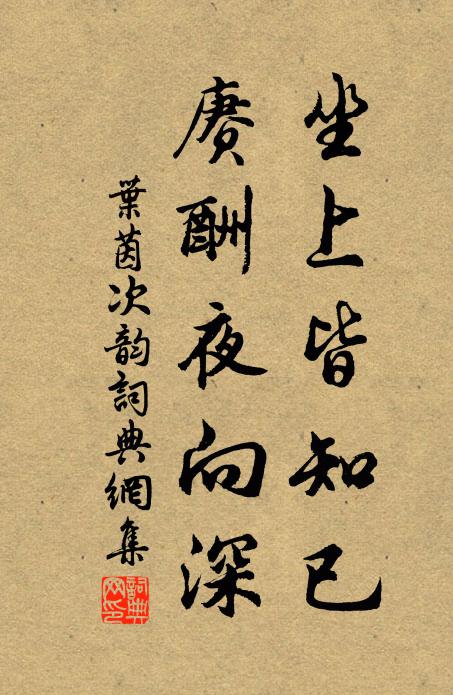 坐上皆知己
賡酬夜向深
葉茵次韵詞典網集
詞典網印